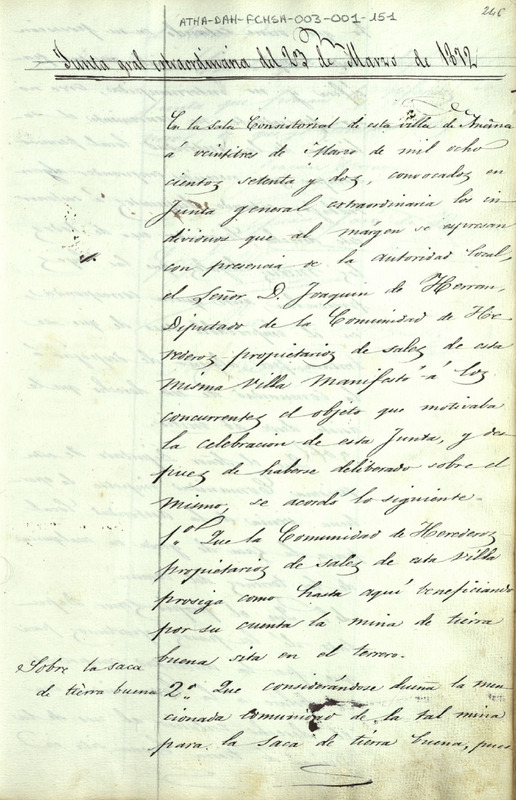 246
ATHA-DAH-FCHSA-003-001-151
Junta gral extraordinaria del 23 de Marzo de 1872
En la Sala Consistorial de esta Villa de Añana
á veintitres de Marzo de mil ocho
cientos setenta y dos, convocados en
Junta general extraordinaria los in
dividuos que al márgen se espresan
con presencia de la autoridad local,
el Señor D. Joaquin de Herran,
Diputado de la Comunidad de He
rederos propietarios de sales de esta
misma Villa manifestó á los
concurrentes el objeto que motivaba
la celebracion de esta Junta, y des
pues de haberse deliberado sobre el
mismo, se acordó lo siguiente.
1.º Que la Comunidad de Herederos
propietarios de sales de esta Villa
prosiga como hasta aquí beneficiando
por su cuenta la mina de tierra
buena sita en el terrero.
Sobre la saca
de tierra buena
2.º Que considerándose dueña la men
cionada comunidad de la tal mina
para la saca de tierra buena, pues